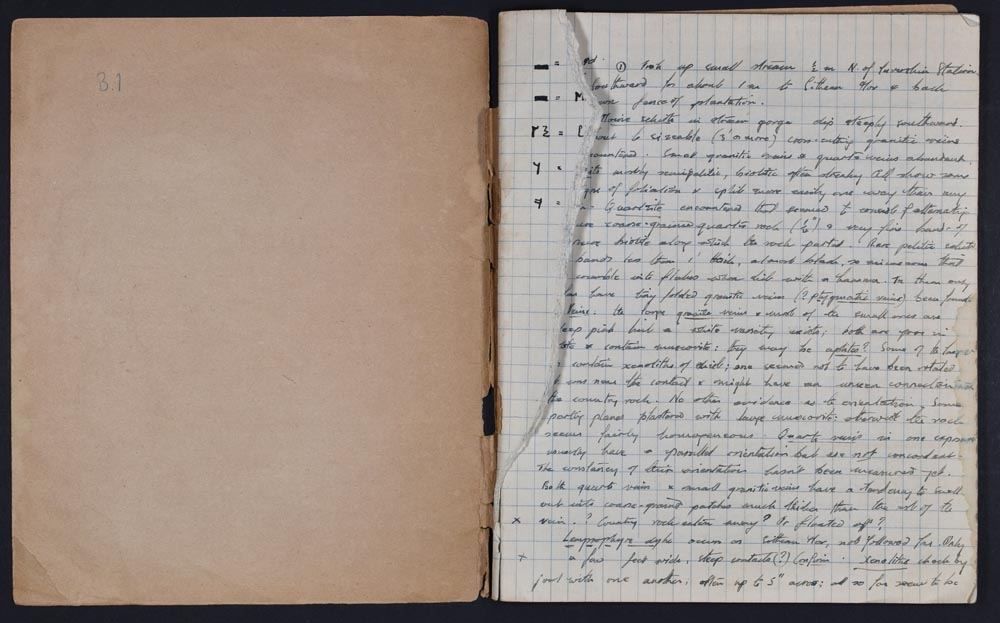 B.1
① Trek up small stream ½ m N. of Station
southward for about 1 m to Mor & back
fence of plantation.
Moine schists in stream gorge dip steeply southward.
to sizeable (3' or more) cross-cutting granitic veins
encountered. Small granitic veins & quartz veins abundant.
mostly semipelitic, biotite often streaky. All show some
of foliation & split more easily one way than any
Quartzite encountered that seemed to consist of alternating
coarse-grained quartz rock (½") & very fine bands of
biotite along which the rock parted. Rare pelitic schist
bands less than 1' thick, almost black, so micaceous that
crumble into flakes when hit with a hammer. In them only
have tiny folded granitic veins (? ptygmatic veins) been found.
Veins: the large granite veins & most of the small ones are
deep pink but a white variety exists; both are poor in
& contain muscovite: they may be aplites? Some of the larger
contain xenoliths of schist; one seemed not to have been rotated
was near the contact & might have an unseen connection
the country rock. No other evidence as to orientation. Some
partly planes plastered with large muscovite: otherwise the rock
seems fairly homogeneous. Quartz veins in one exposure
usually have a parallel orientation but are not concordant.
The constancy of their orientation hasn't been measured yet.
Both quartz vein & small granitic veins have a tendency to swell
out into coarse-grained patches much thicker than the rest of the
x vein. ? Country rock eaten away? Or floated off?
Lamprophyre dyke occurs on Mor, not followed far. Only
x a few feet wide, steep contacts (?) Confirm. Xenoliths check by
just with one another; often up to 5" across; all so far seem to be